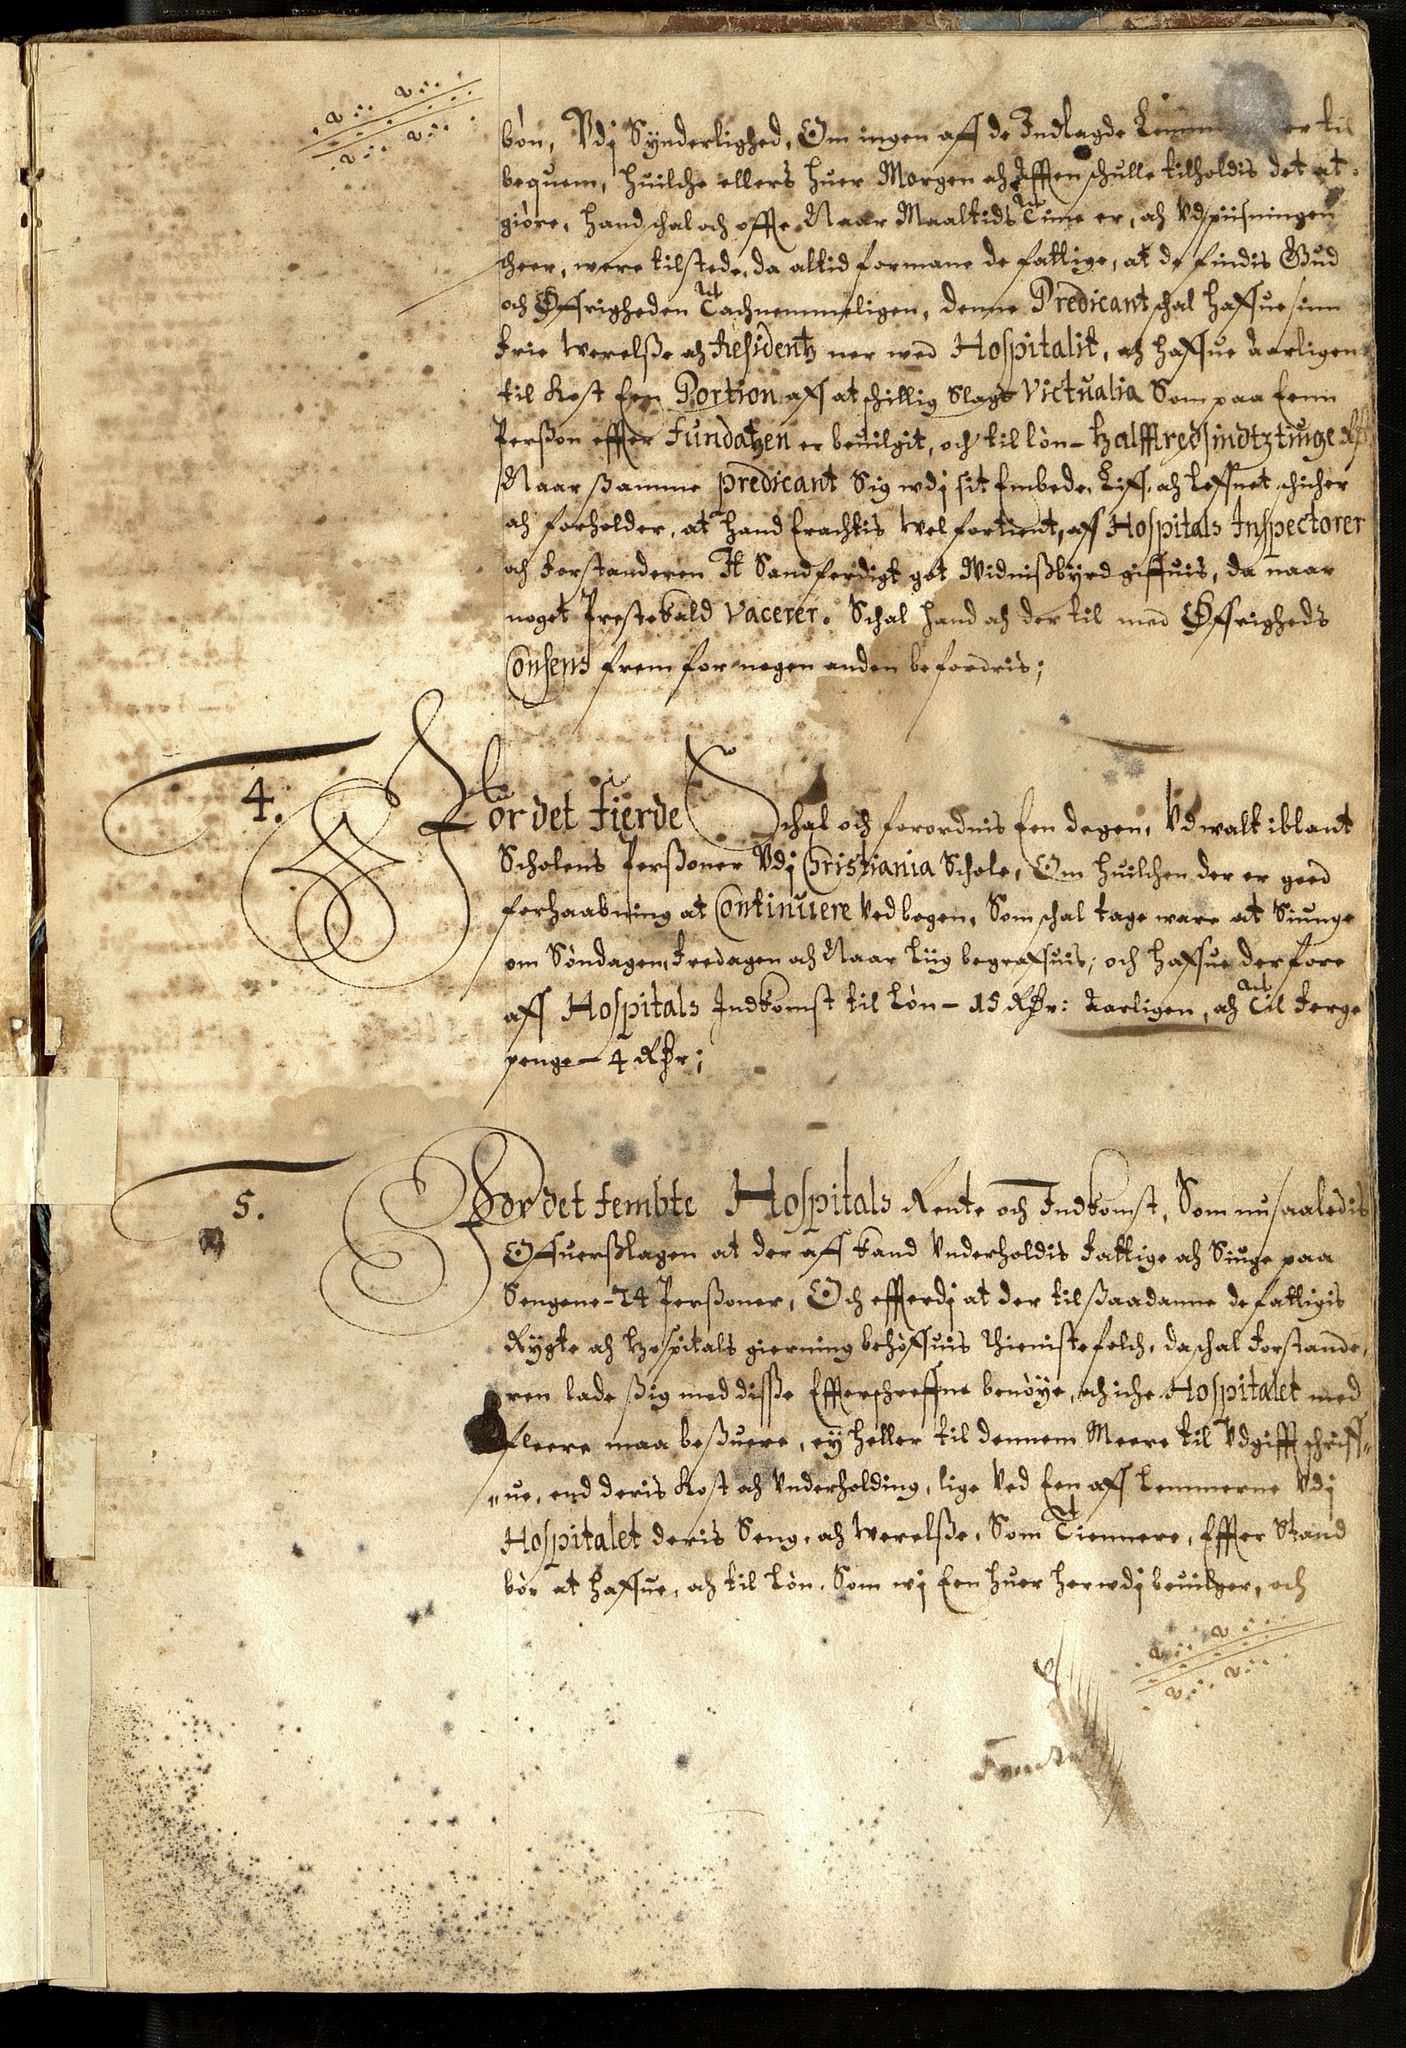 bøn, Vdj Synderlighed, Om ingen aff de Indlagde er til
bequem, huilche ellers huer Morgen och Afften schulle tilholdis det at
giøre, hand schal och offte Naar Maaltids Time er, och Vdspiisningen
scheer, were tilstede, da altid formane de fattige, at de findis Gud
och Øffrigheden Tachnemmeligen, denne Predicant schal haffue sinn
frie Werelße och Residentz ner wed Hospitalit, och haffue Aarligen
til Kost Een Portion aff atschillig Slags Victualia Som paa Eenn
Perßon effter Fundatzen er beuilgit, och til løn - halfftredsindtztiuge Rdr
Naar ßamme predicant Sig wdj sit Embede, Liff och Leffnet schicher
och forholder, at hand Erachtis Vel fortient, aff Hospitals Inspectorer
och Forstanderen It Sandferdigt got Widnißbyrd giffuis, da naar
noget Prestekald Vacerer. Schal hand och der til med Øffrigheds
Consens frem for nogen anden befordris;
4. For det Fierde Schal och forordnis Een degen, Vdwalt iblant
Scholens Perßoner Vdj Christiania Schole, Om huilchen der er goed
forhaabning at Continuere Ved bogen, Som schal tage ware at Siunge
om Søndagen, Fredagen och Naar Liig begraffuis; och haffue derfore
aff Hospitals Indkomst til Løn - 15 Rdr: Aarligen, och Til Ferge
penge - 4 Rdr;
5. For det Fembte Hospitals Rente och Indkomst, Som nu saaledis
Offuerßlagen at der aff kand Vnderholdis Fattige och Siuge paa
Sengene - 24 Perßoner, Och effterdj at der til ßaadanne de fattigis
Rygte och Hospitals gierning behøffuis thienistefolch, da schal Forstande,
ren lade ßig med diße Effterschreffne benøye, och iche Hospitalet med
fleere maa beßuere, ey heller til dennem Meere til Vdgifft schriff„
„ue, end deris Kost och Vnderholding, lige Ved Een aff Lemmerne Vdj
Hospitalet deris Seng, och Werelße, Som Tiennere, Effter Stand
bør at haffue, och til Løn, Som wj Een huer herwdj beuilger, och